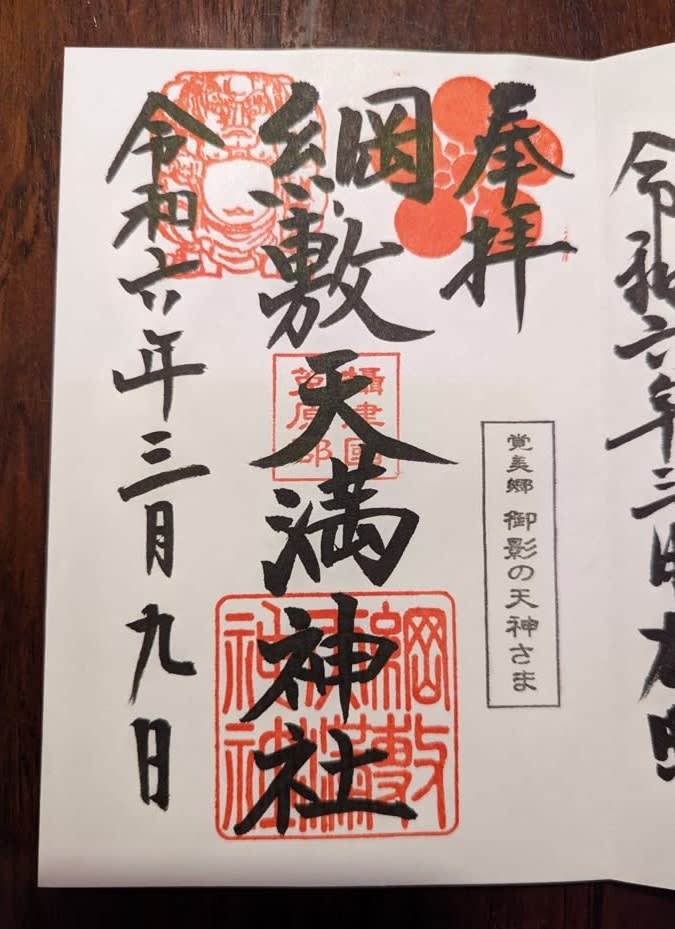 令和六年三月
奉拝
覚美郷 御影の天神さま
綱敷天満神社
攝津國
菟原郡
綱敷
天満
令和六年三月九日